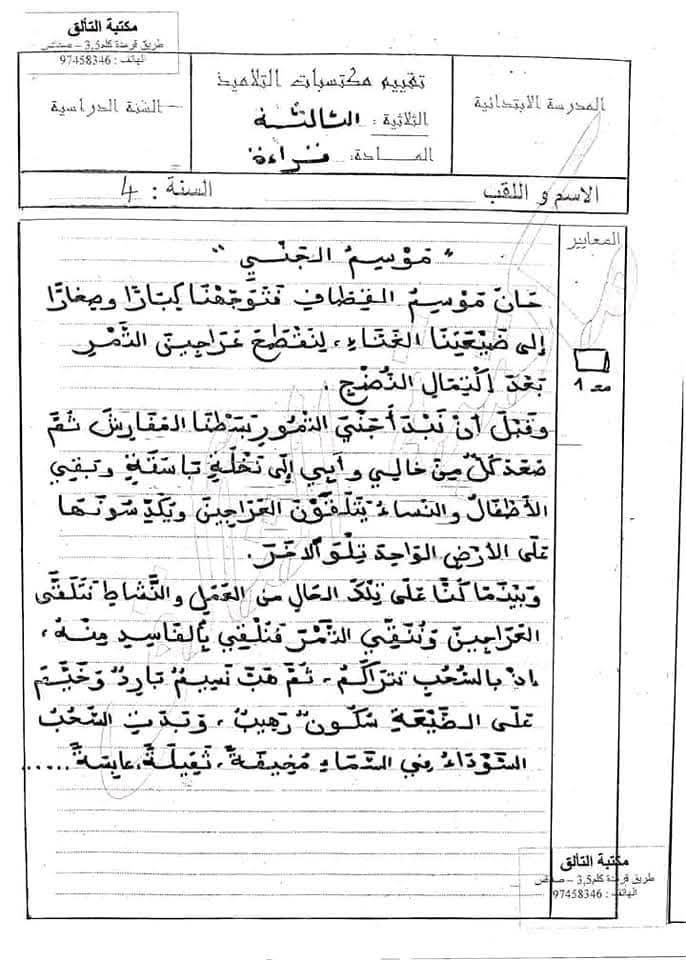 مكتبة التألق
طريق قرمدة كلم3,5 – صفاقس
الهاتف : 97458346
المدرسة الابتدائية
تقييم مكتسبات التلاميذ
الثلاثية : الثالثة
المادة: قراءة
السنة الدراسية
الاسم و اللقب
السنة : 4
المعايير
" مَوْسِمُ الجَنْيِ "
حَانَ مَوْسِمُ القِطَافِ فَتَوَجَّهْنَا كِبَارًا وصِغَارًا
إلى ضَيْعَتِنَا الغَنَّاءِ، لِنَقْتَطِعَ عَرَاجِينَ التَّمْرِ
بَعْدَ اكْتِمَالِ النُّضْجِ.
مع 1
وقَبْلَ أَنْ نَبْدَأَ جَنْيَ التُّمُورِ بَسَطْنَا المَفَارِشَ ثُمَّ
صَعِدَ كُلٌّ مِنْ خَالِي وأَبِي إلى نَخْلَةٍ بَاسِقَةٍ وبَقِيَ
الأَطْفَالُ والنِّسَاءُ يَتَلَقَّوْنَ العَرَاجِينَ ويُكَدِّسُونَهَا
عَلَى الأَرْضِ الوَاحِدَ تِلْوَ الآخَرَ.
وَبَيْنَمَا كُنَّا عَلَى تِلْكَ الحَالِ من العَمَلِ والنَّشَاطِ نَتَلَقَّى
العَرَاجِينَ ونُنَقِّي التَّمْرَ فَنُلْقِي بِالفَاسِدِ مِنْهُ،
إذ بالسُّحُبِ تتراكَمُ، ثُمَّ هَبَّ نَسِيمٌ بَارِدٌ وَخَيَّمَ
عَلَى الضَّيْعَةِ سُكُونٌ رَهِيبٌ، وَبَدَتِ السُّحُبُ
السَّوْدَاءُ فِي السَّمَاءِ مُخِيفَةً، ثَقِيلَةً، عَابِسَةً.....
مكتبة التألق
طريق قرمدة كلم3,5 – صفاقس
الهاتف : 97458346